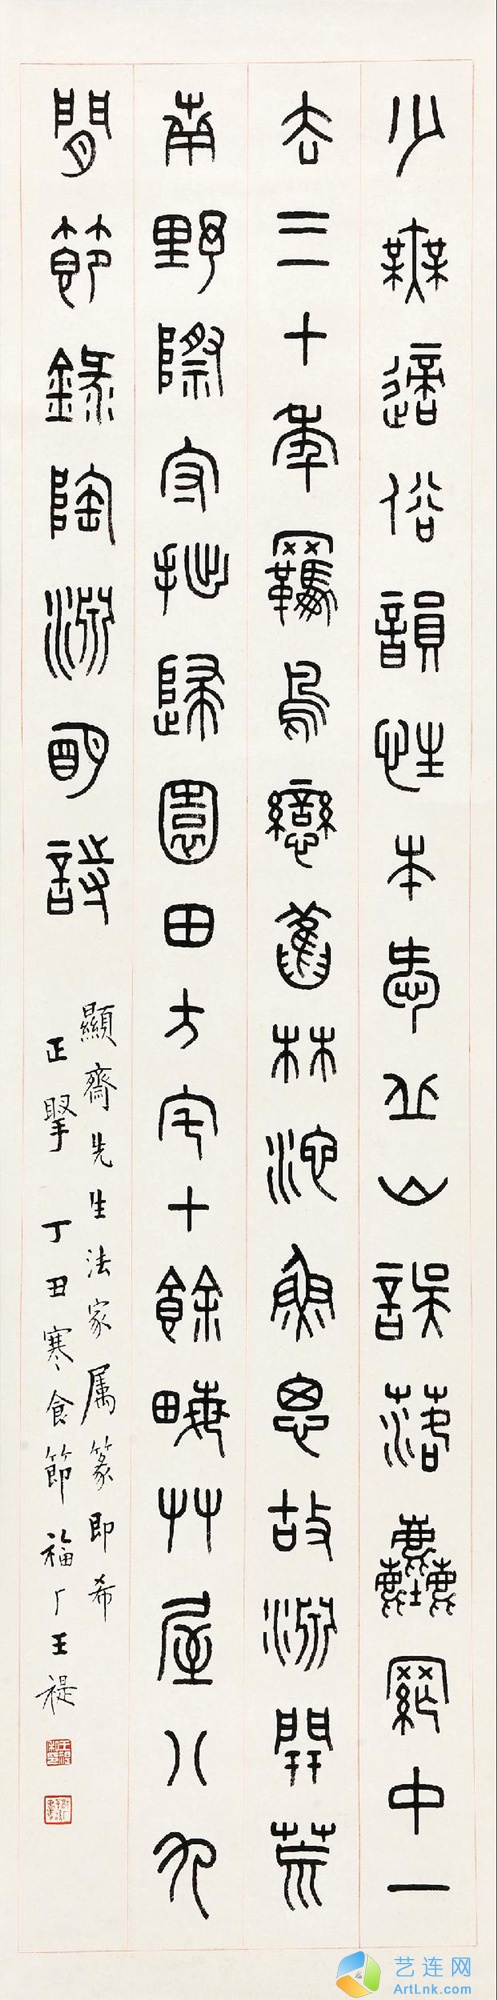 少無適俗韻性本㤅丘山誤落塵網中一
去三十年羈鳥戀舊林池魚思故淵開荒
南野際守拙歸園田方宅十餘畮艸屋八九
間節錄陶淵明詩
顯齋先生法家属篆即希
正掔 丁丑寒食節福厂王禔
艺连网
ArtLnk.com